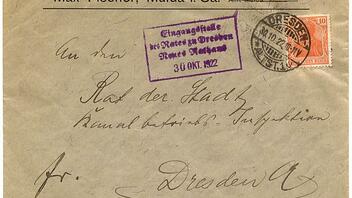 Max Fischer, Mulda i. Sa.
Eingangsstelle
des Rates zu Dresden
Neues Rathaus
30 OKT. 1922
DRESDEN
ALTST. 1
10
An den
Rat der Stadt
Kanalbetriebs-Inspektion
fr.
Dresden A